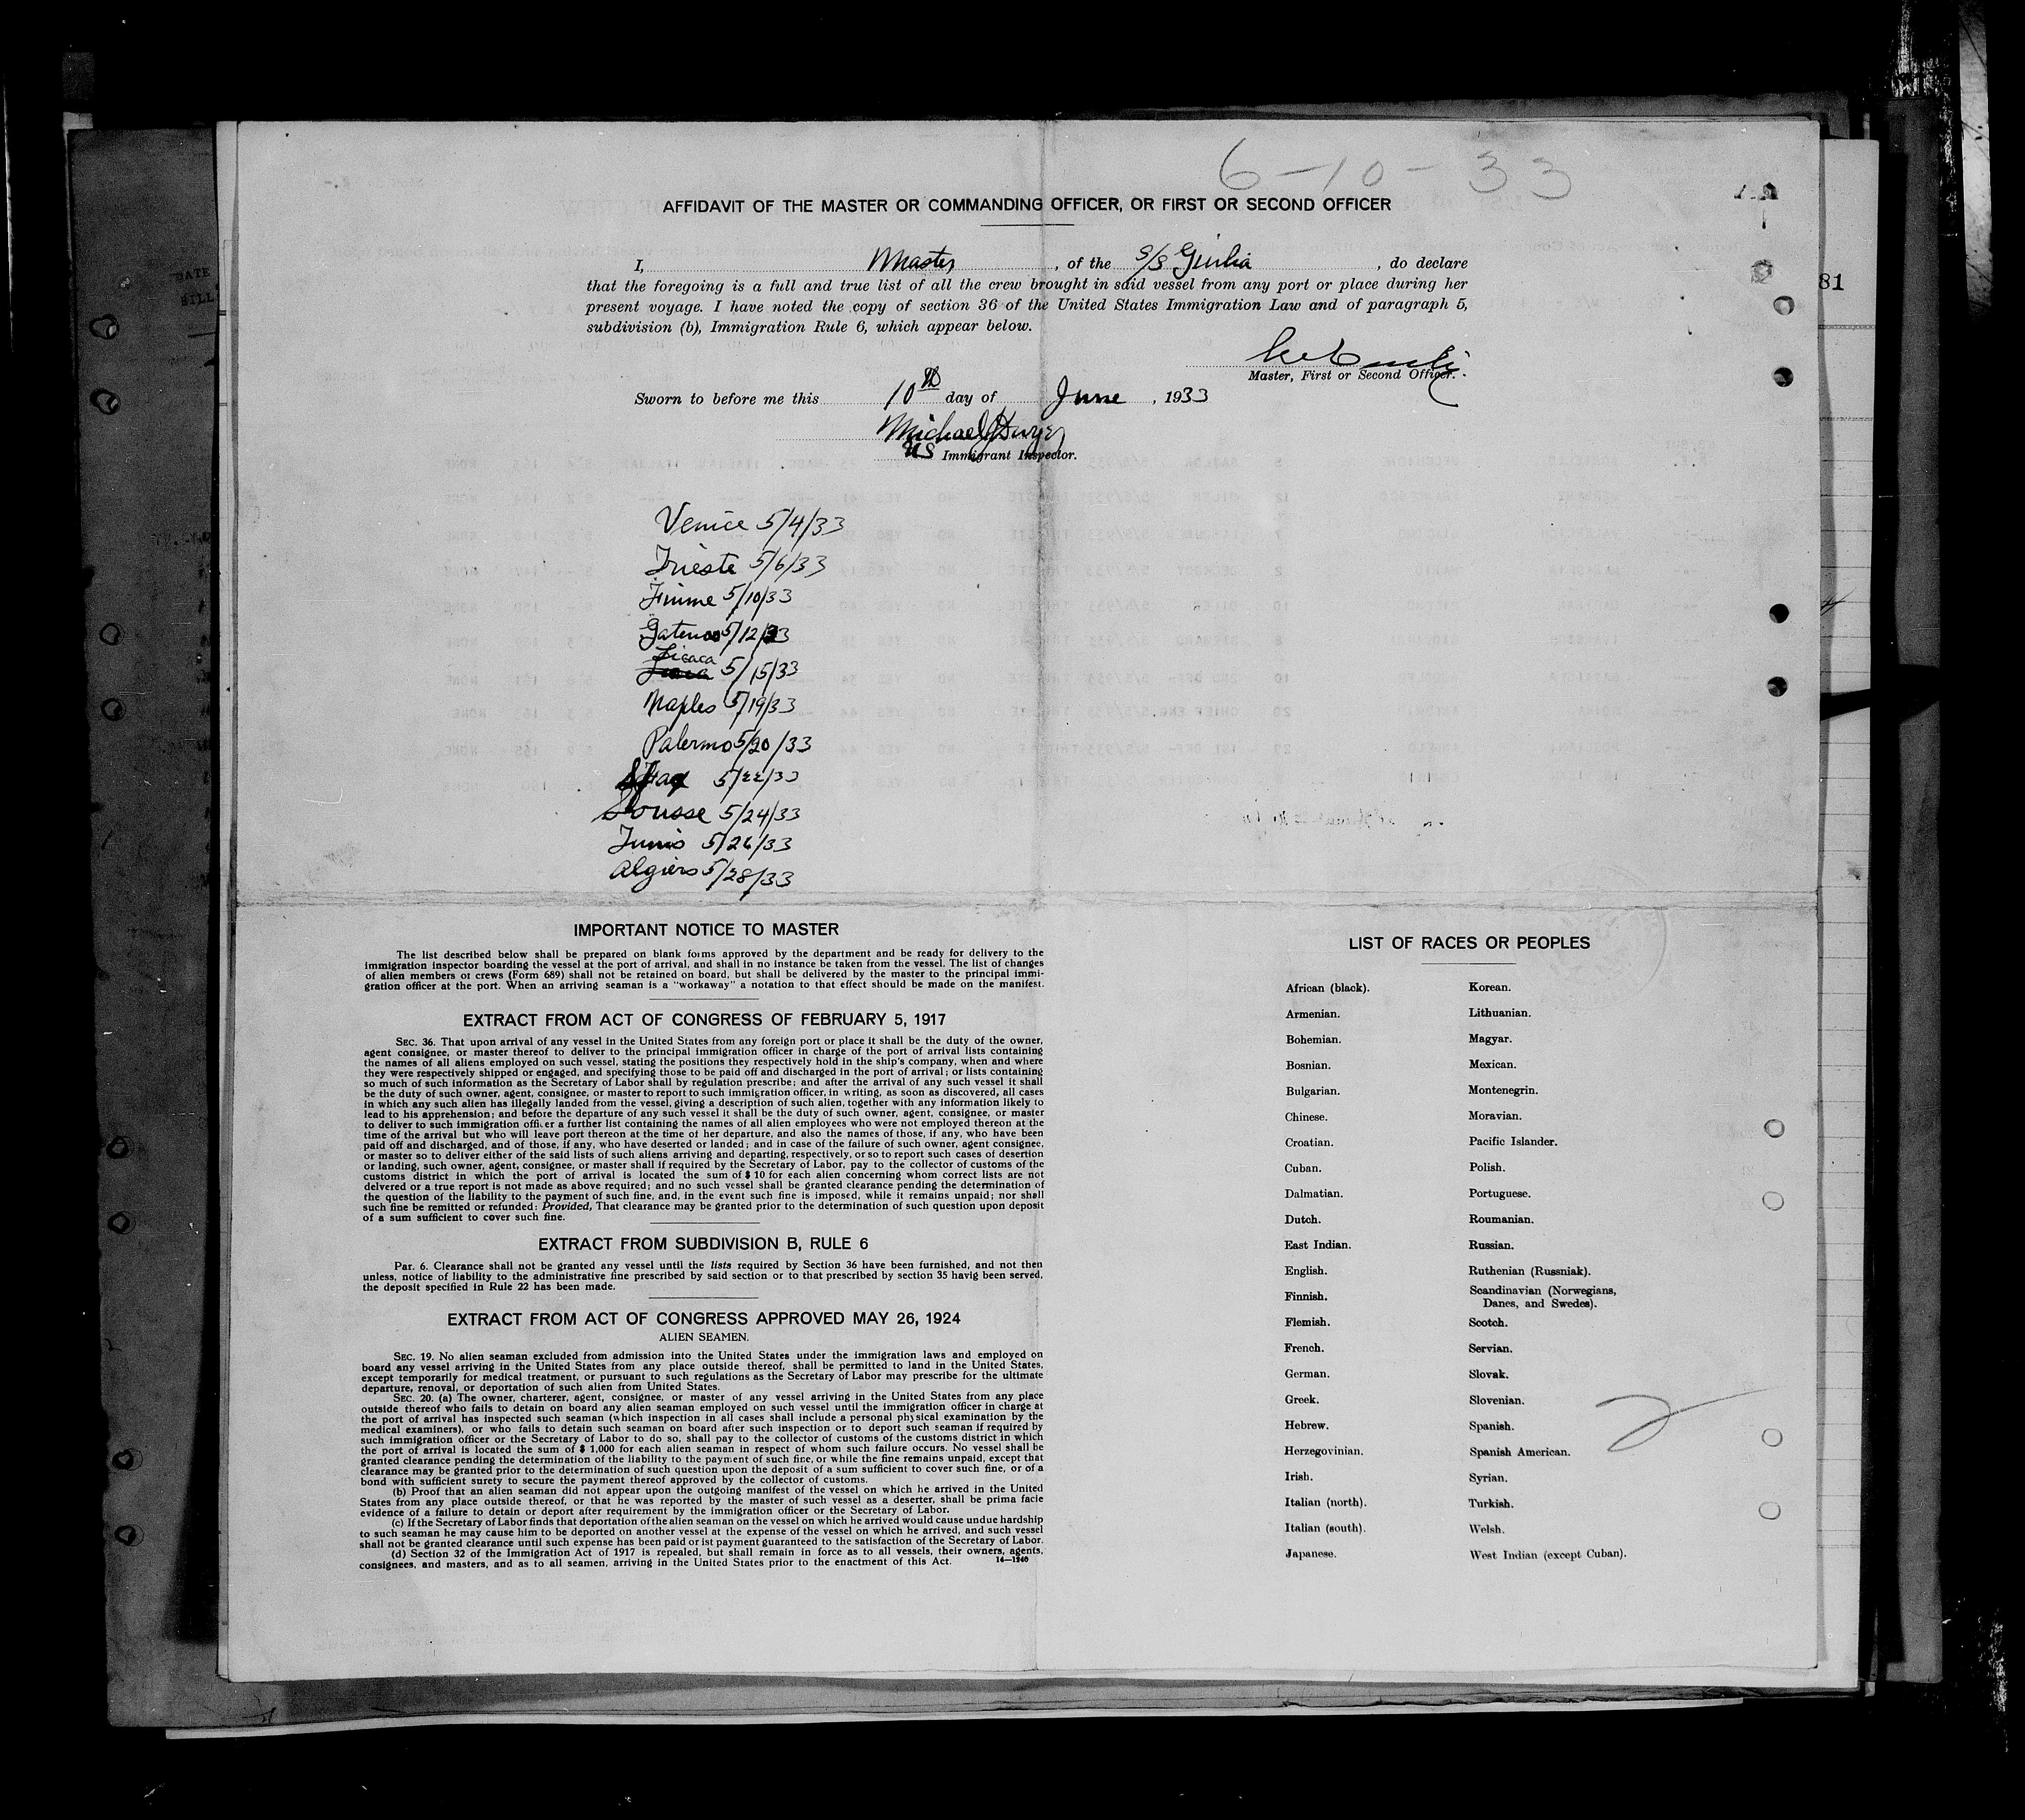 6-10-33
AFFIDAVIT OF THE MASTER OR COMMANDING OFFICER, OR FIRST OR SECOND OFFICER
I, Master, of the S/S Giulia, do declare
that the foregoing is a full and true list of all the crew brought in said vessel from any port or place during her
present voyage. I have noted the copy of section 36 of the United States Immigration Law and of paragraph 5,
subdivision (b), Immigration Rule 6, which appear below.
Master, First or Second Officer.
Sworn to before me this 10th day of June, 1933
Michael J Dwyer
US Immigrant Inspector.
81
DATE
BILL
Venice 5/4/33
Trieste 5/6/33
Fiume 5/10/33
5/12/33
5/15/33
Naples 5/19/33
Palermo 5/20/33
Sfax 5/22/33
Sousse 5/24/33
Tunis 5/26/33
Algiers 5/28/33
IMPORTANT NOTICE TO MASTER
The list described below shall be prepared on blank forms approved by the department and be ready for delivery to the
immigration inspector boarding the vessel at the port of arrival, and shall in no instance be taken from the vessel. The list of changes
of alien members or crews (Form 689) shall not be retained on board, but shall be delivered by the master to the principal immi-
gration officer at the port. When an arriving seaman is a "workaway" a notation to that effect should be made on the manifest.
EXTRACT FROM ACT OF CONGRESS OF FEBRUARY 5, 1917
SEC. 36. That upon arrival of any vessel in the United States from any foreign port or place it shall be the duty of the owner,
agent consignee, or master thereof to deliver to the principal immigration officer in charge of the port of arrival lists containing
the names of all aliens employed on such vessel, stating the positions they respectively hold in the ship's company, when and where
they were respectively shipped or engaged, and specifying those to be paid off and discharged in the port of arrival; or lists containing
so much of such information as the Secretary of Labor shall by regulation prescribe; and after the arrival of any such vessel it shall
be the duty of such owner, agent, consignee, or master to report to such immigration officer, in writing, as soon as discovered, all cases
in which any such alien has illegally landed from the vessel, giving a description of such alien, together with any information likely to
lead to his apprehension; and before the departure of any such vessel it shall be the duty of such owner, agent, consignee, or master
to deliver to such immigration officer a further list containing the names of all alien employees who were not employed thereon at the
time of the arrival but who will leave port thereon at the time of her departure, and also the names of those, if any, who have been
paid off and discharged, and of those, if any, who have deserted or landed; and in case of the failure of such owner, agent consignee,
or master so to deliver either of the said lists of such aliens arriving and departing, respectively, or so to report such cases of desertion
or landing, such owner, agent, consignee, or master shall if required by the Secretary of Labor, pay to the collector of customs of the
customs district in which the port of arrival is located the sum of $ 10 for each alien concerning whom correct lists are not
delivered or a true report is not made as above required; and no such vessel shall be granted clearance pending the determination of
the question of the liability to the payment of such fine, and, in the event such fine is imposed, while it remains unpaid; nor shall
such fine be remitted or refunded: Provided, That clearance may be granted prior to the determination of such question upon deposit
of a sum sufficient to cover such fine.
EXTRACT FROM SUBDIVISION B, RULE 6
Par. 6. Clearance shall not be granted any vessel until the lists required by Section 36 have been furnished, and not then
unless, notice of liability to the administrative fine prescribed by said section or to that prescribed by section 35 havig been served,
the deposit specified in Rule 22 has been made.
EXTRACT FROM ACT OF CONGRESS APPROVED MAY 26, 1924
ALIEN SEAMEN.
SEC. 19. No alien seaman excluded from admission into the United States under the immigration laws and employed on
board any vessel arriving in the United States from any place outside thereof, shall be permitted to land in the United States,
except temporarily for medical treatment, or pursuant to such regulations as the Secretary of Labor may prescribe for the ultimate
departure, removal, or deportation of such alien from United States.
SEC. 20. (a) The owner, charterer, agent, consignee, or master of any vessel arriving in the United States from any place
outside thereof who fails to detain on board any alien seaman employed on such vessel until the immigration officer in charge at
the port of arrival has inspected such seaman (which inspection in all cases shall include a personal physical examination by the
medical examiners), or who fails to detain such seaman on board after such inspection or to deport such seaman if required by
such immigration officer or the Secretary of Labor to do so, shall pay to the collector of customs of the customs district in which
the port of arrival is located the sum of $ 1,000 for each alien seaman in respect of whom such failure occurs. No vessel shall be
granted clearance pending the determination of the liability to the payment of such fine, or while the fine remains unpaid, except that
clearance may be granted prior to the determination of such question upon the deposit of a sum sufficient to cover such fine, or of a
bond with sufficient surety to secure the payment thereof approved by the collector of customs.
(b) Proof that an alien seaman did not appear upon the outgoing manifest of the vessel on which he arrived in the United
States from any place outside thereof, or that he was reported by the master of such vessel as a deserter, shall be prima facie
evidence of a failure to detain or deport after requirement by the immigration officer or the Secretary of Labor.
(c) If the Secretary of Labor finds that deportation of the alien seaman on the vessel on which he arrived would cause undue hardship
to such seaman he may cause him to be deported on another vessel at the expense of the vessel on which he arrived, and such vessel
shall not be granted clearance until such expense has been paid or ist payment guaranteed to the satisfaction of the Secretary of Labor.
(d) Section 32 of the Immigration Act of 1917 is repealed, but shall remain in force as to all vessels, their owners, agents,
consignees, and masters, and as to all seamen, arriving in the United States prior to the enactment of this Act. 14—1240
LIST OF RACES OR PEOPLES
African (black). Korean.
Armenian. Lithuanian.
Bohemian. Magyar.
Bosnian. Mexican.
Bulgarian. Montenegrin.
Chinese. Moravian.
Croatian. Pacific Islander.
Cuban. Polish.
Dalmatian. Portuguese.
Dutch. Roumanian.
East Indian. Russian.
English. Ruthenian (Russniak).
Finnish. Scandinavian (Norwegians,
Danes, and Swedes).
Flemish. Scotch.
French. Servian.
German. Slovak.
Greek. Slovenian.
Hebrew. Spanish.
Herzegovinian. Spanish American.
Irish. Syrian.
Italian (north). Turkish.
Italian (south). Welsh.
Japanese. West Indian (except Cuban).
2